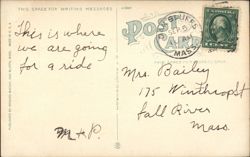 THIS SPACE FOR WRITING MESSAGES
Post
Card
SEP 5
MASS
This is where
we are going
for a ride
M + P.
Mrs. Bailey
175 Winthrop St
Fall River
Mass.